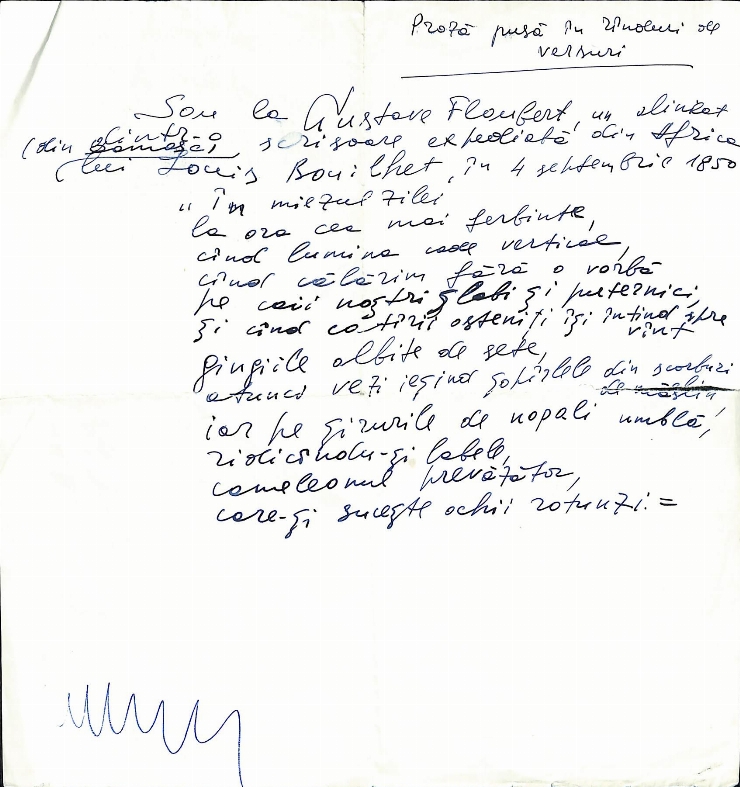 Proză pusă în rînduri de
versuri
Sau la Gustave Flaubert, un alineat
(din dintr-o scrisoare expediată din Africa
lui Louis Bouilhet, în 4 septembrie 1850
„ În miezul zilei
la ora cea mai ferbinte,
cînd lumina cade vertical,
cînd călărim fără o vorbă
pe caii noștri slabi și puternici,
și cînd catîrii osteniți își întind spre
vînt
gingiile albite de sete,
atunci vezi ieșind șopîrlele din scorburi
de măslin
iar pe șirurile de nopali umblă,
ridicîndu-și labele,
cameleonul prevăzător,
care-și sucește ochii rotunzi. =